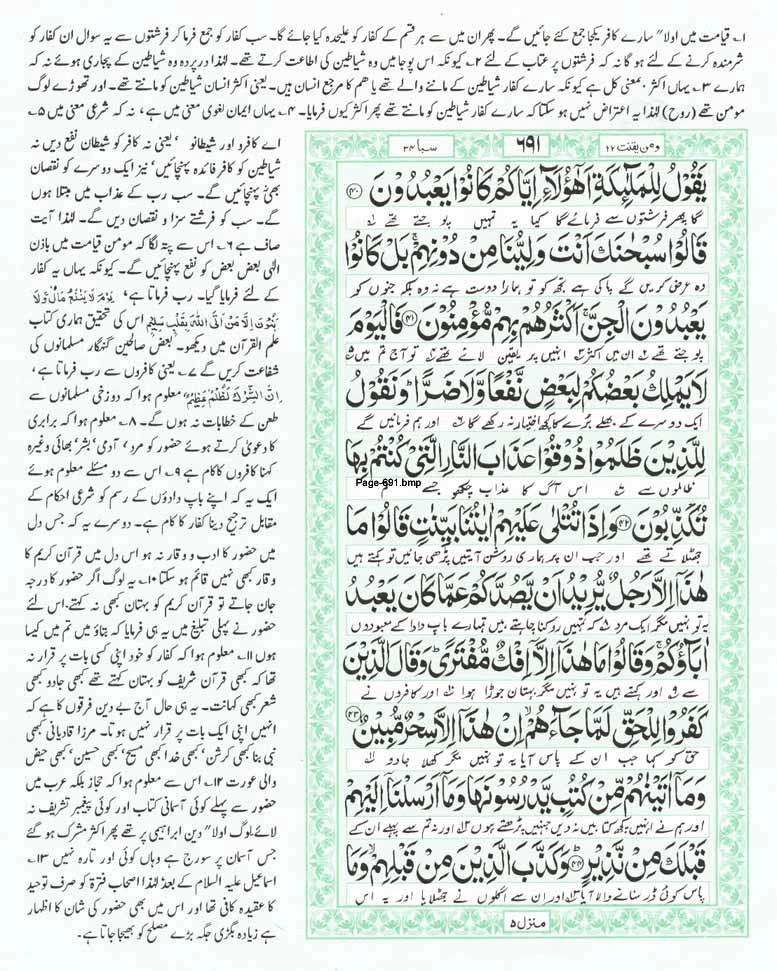 ۱؎ قیامت میں اولا" سارے کافر یکجا جمع کئے جائیں گے۔ پھر ان میں سے ہر قسم کے کفار کو علیحدہ کیا جائے گا۔ سب کفار کو جمع فرما کر فرشتوں سے یہ سوال ان کفار کو
شرمندہ کرنے کے لئے ہو گا نہ کہ فرشتوں پر عتاب کے لئے ۲؎ کیونکہ اس پوجا میں وہ شیاطین کی اطاعت کرتے تھے۔ لہٰذا در پردہ وہ شیاطین کے پجاری ہوئے نہ کہ
ہمارے ۳؎ یہاں اکثر بمعنی کل ہے کیونکہ سارے کفار شیاطین کے ماننے والے تھے یا ھم کا مرجع انسان ہیں۔ یعنی اکثر انسان شیاطین کو مانتے تھے۔ اور تھوڑے لوگ
مومن تھے (روح) لہٰذا یہ اعتراض نہیں ہو سکتا کہ سارے کفار شیاطین کو مانتے تھے پھر اکثر کیوں فرمایا۔ ۴؎ یہاں ایمان لغوی معنی میں ہے، نہ کہ شرعی معنی میں ۵؎
ومن یقنت ۲۲
۶۹۱
سبا ۳۴
يَقُوْلُ لِلْمَلٰٓئِكَةِ اَهٰٓؤُلَآءِ اِيَّاكُمْ كَانُوْا يَعْبُدُوْنَ ﴿۴۰﴾
گا پھر فرشتوں سے فرمائے گا کیا یہ تمہیں پوجتے تھے
قَالُوْا سُبْحٰنَكَ اَنْتَ وَلِيُّنَا مِنْ دُوْنِهِمْ ۚ بَلْ كَانُوْا
وہ عرض کریں گے پاکی ہے تجھ کو تو ہمارا دوست ہے نہ وہ بلکہ جنوں کو
يَعْبُدُوْنَ الْجِنَّ ۚ اَكْثَرُهُمْ بِهِمْ مُّؤْمِنُوْنَ ﴿۴۱﴾ فَالْيَوْمَ
پوجتے تھے ان میں اکثر انہیں پر یقین لائے تھے تو آج تم میں
لَا يَمْلِكُ بَعْضُكُمْ لِبَعْضٍ نَّفْعًا وَّلَا ضَرًّا ۗ وَنَقُوْلُ
ایک دوسرے کے بھلے برے کا کچھ اختیار نہ رکھے گا اور ہم فرمائیں گے
لِلَّذِيْنَ ظَلَمُوْا ذُوْقُوْا عَذَابَ النَّارِ الَّتِيْ كُنْتُمْ بِهَا
ظالموں سے اس آگ کا عذاب چکھو جسے تم
Page-691.bmp
تُكَذِّبُوْنَ ﴿۴۲﴾ وَاِذَا تُتْلٰى عَلَيْهِمْ اٰيٰتُنَا بَيِّنٰتٍ قَالُوْا مَا
جھٹلاتے تھے اور جب ان پر ہماری روشن آیتیں پڑھی جائیں تو کہتے ہیں
هٰذَآ اِلَّا رَجُلٌ يُّرِيْدُ اَنْ يَّصُدَّكُمْ عَمَّا كَانَ يَعْبُدُ
یہ تو نہیں مگر ایک مرد کہ تمہیں روکنا چاہتے ہیں تمہارے باپ دادا کے معبودوں
اٰبَآؤُكُمْ ۚ وَقَالُوْا مَا هٰذَآ اِلَّآ اِفْكٌ مُّفْتَرًى ۭ وَقَالَ الَّذِيْنَ
سے اور کہتے ہیں یہ تو نہیں مگر بہتان جوڑا ہوا اور کافروں نے
كَفَرُوْا لِلْحَقِّ لَمَّا جَآءَهُمْ ۙ اِنْ هٰذَآ اِلَّا سِحْرٌ مُّبِيْنٌ ﴿۴۳﴾
حق کو کہا جب ان کے پاس آیا یہ تو نہیں مگر کھلا جادو
وَمَآ اٰتَيْنٰهُمْ مِّنْ كُتُبٍ يَّدْرُسُوْنَهَا وَمَآ اَرْسَلْنَآ اِلَيْهِمْ
اور ہم نے انہیں کچھ کتابیں نہ دیں جنہیں پڑھتے ہوں اور نہ تم سے پہلے ان کے
قَبْلَكَ مِنْ نَّذِيْرٍ ﴿۴۴﴾ وَكَذَّبَ الَّذِيْنَ مِنْ قَبْلِهِمْ ۙ وَمَا
پاس کوئی ڈر سنانے والا آیا اور ان سے اگلوں نے جھٹلایا اور یہ اس
منزل ۵
اے کافرو اور شیطانو ' یعنی نہ کافر کو شیطان نفع دیں نہ
شیاطین کو کافر فائدہ پہنچائیں' نیز ایک دوسرے کو نقصان
بھی پہنچائیں گے۔ سب رب کے عذاب میں مبتلا ہوں
گے۔ سب کو فرشتے سزا و نقصان دیں گے۔ لہٰذا آیت
صاف ہے ۶؎ اس سے پتہ لگا کہ مومن قیامت میں باذن
الٰہی بعض بعض کو نفع پہنچائیں گے۔ کیونکہ یہاں یہ کفار
کے لئے فرمایا گیا۔ رب فرماتا ہے' يَوْمَ لَا يَنْفَعُ مَالٌ وَّلَا
بَنُوْنَ اِلَّا مَنْ اَتَى اللّٰهَ بِقَلْبٍ سَلِيْمٍ اس کی تحقیق ہماری کتاب
علم القرآن میں دیکھو۔ بعض صالحین گنہگار مسلمانوں کی
شفاعت کریں گے ۷؎ یعنی کافروں سے رب فرماتا ہے،
اِنَّ الشِّرْكَ لَظُلْمٌ عَظِيْمٌ معلوم ہوا کہ دوزخی مسلمانوں سے
طعن کے خطابات نہ ہوں گے۔ ۸؎ معلوم ہوا کہ برابری
کا دعویٰ کرتے ہوئے حضور کو مرد' آدمی' بشر' بھائی وغیرہ
کہنا کافروں کا کام ہے ۹؎ اس سے دو مسئلے معلوم ہوئے
ایک یہ کہ اپنے باپ دادوں کے رسم کو شرعی احکام کے
مقابل ترجیح دینا کفار کا کام ہے۔ دوسرے یہ کہ جس دل
میں حضور کا ادب و وقار نہ ہو اس دل میں قرآن کریم کا
وقار بھی نہیں قائم ہو سکتا ۱۰؎ یہ لوگ اگر حضور کا درجہ
جان جاتے تو قرآن کریم کو بہتان کبھی نہ کہتے، اس لئے
حضور نے پہلی تبلیغ میں یہ ہی فرمایا کہ بتاؤ میں تم میں کیسا
ہوں ۱۱؎ معلوم ہوا کہ کفار کو خود اپنی کسی بات پر قرار نہ
تھا کہ کبھی قرآن شریف کو بہتان کہتے تھے کبھی جادو کبھی
شعر کبھی کہانت۔ یہ ہی حال آج بے دین فرقوں کا ہے کہ
انہیں اپنی ایک بات پر قرار نہیں ہوتا۔ مرزا قادیانی کبھی
نبی بنا' کبھی کرشن' کبھی خدا' کبھی مسیح' کبھی حسین' کبھی حیض
والی عورت ۱۲؎ اس سے معلوم ہوا کہ حجاز بلکہ عرب میں
حضور سے پہلے کوئی آسمانی کتاب اور کوئی پیغمبر تشریف نہ
لائے، لوگ اولا" دین ابراہیمی پر تھے پھر اکثر مشرک ہو گئے
جس آسمان پر سورج ہے وہاں کوئی اور تارہ نہیں ۱۳؎
اسماعیل علیہ السلام کے بعد' لہٰذا اصحاب فترۃ کو صرف توحید
کا عقیدہ کافی تھا اور اس میں بھی حضور کی شان کا اظہار
ہے زیادہ بگڑی جگہ بڑے مصلح کو بھیجا جاتا ہے۔